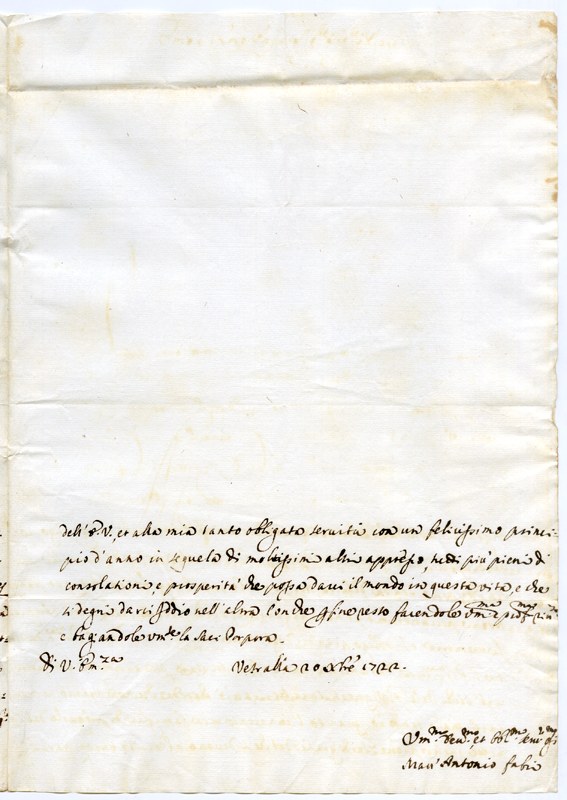 dell' E. V., et alla mia tanto obligata servitù con un felicissimo princi-
pio d'anno in sequela di moltissimi altri appresso, tutti più pieni di
consolationi, e prosperità che possa darci il mondo in questa vita, e che
si degni darci Iddio nell'altra con che per fine resto facendole
e bagiandole la Sacra Porpora.
Di V. Em.za Vetralla 20 Xbre 1722.
Um.mo Dev.mo et Obl.mo
Marc' Antonio fabri